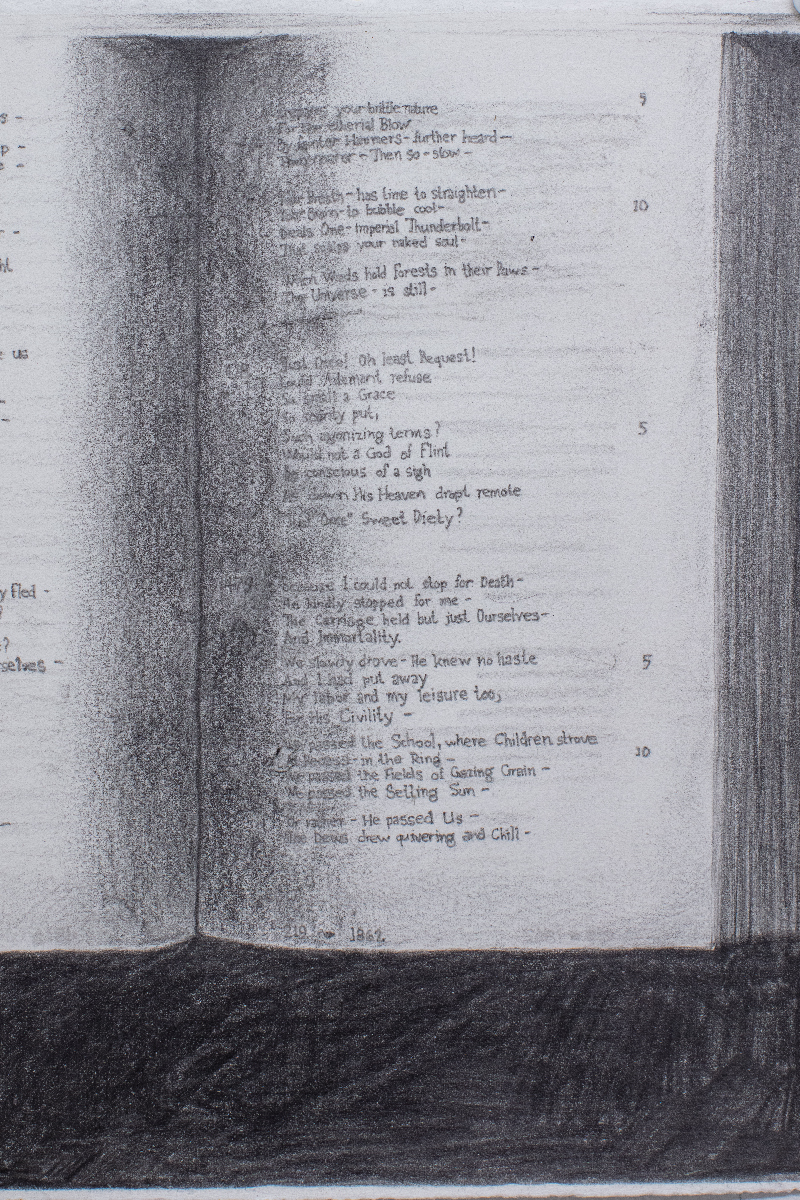 s -
p -
e -
r -
ht
e us
y fled -
?
?
rselves -
your brittle nature 5
etherial Blow
By fainter Hammers - further heard -
Then so - slow -
Breath - has time to straighten -
Brain - to bubble cool - 10
Deals One - Imperial Thunderbolt -
That your naked soul -
When Winds hold Forests in their Paws -
The Universe - is still -
Just Once! Oh least Request!
Could Adamant refuse
So small a Grace
So put,
Such agonizing terms? 5
Would not a God of Flint
Be conscious of a sigh
As down His Heaven dropt remote
"Just Once" Sweet Diety?
479 Because I could not stop for Death -
He kindly stopped for me -
The Carriage held but just Ourselves -
And Immortality.
We slowly drove - He knew no haste 5
And I had put away
My labor and my leisure too,
For His Civility -
We passed the School, where Children strove
At Recess - in the Ring - 10
We passed the Fields of Gazing Grain -
We passed the Setting Sun -
Or rather - He passed Us -
The Dews drew quivering and Chill -
219 1862